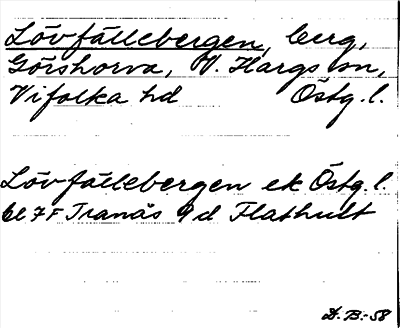 Lövfällebergen, berg,
Görshorva, V. Hargs sn,
Vifolka hd Östg. l.
Lövfällebergen ek Östg. l.
bl 7F Tranås 9d Flathult
D. B:-58